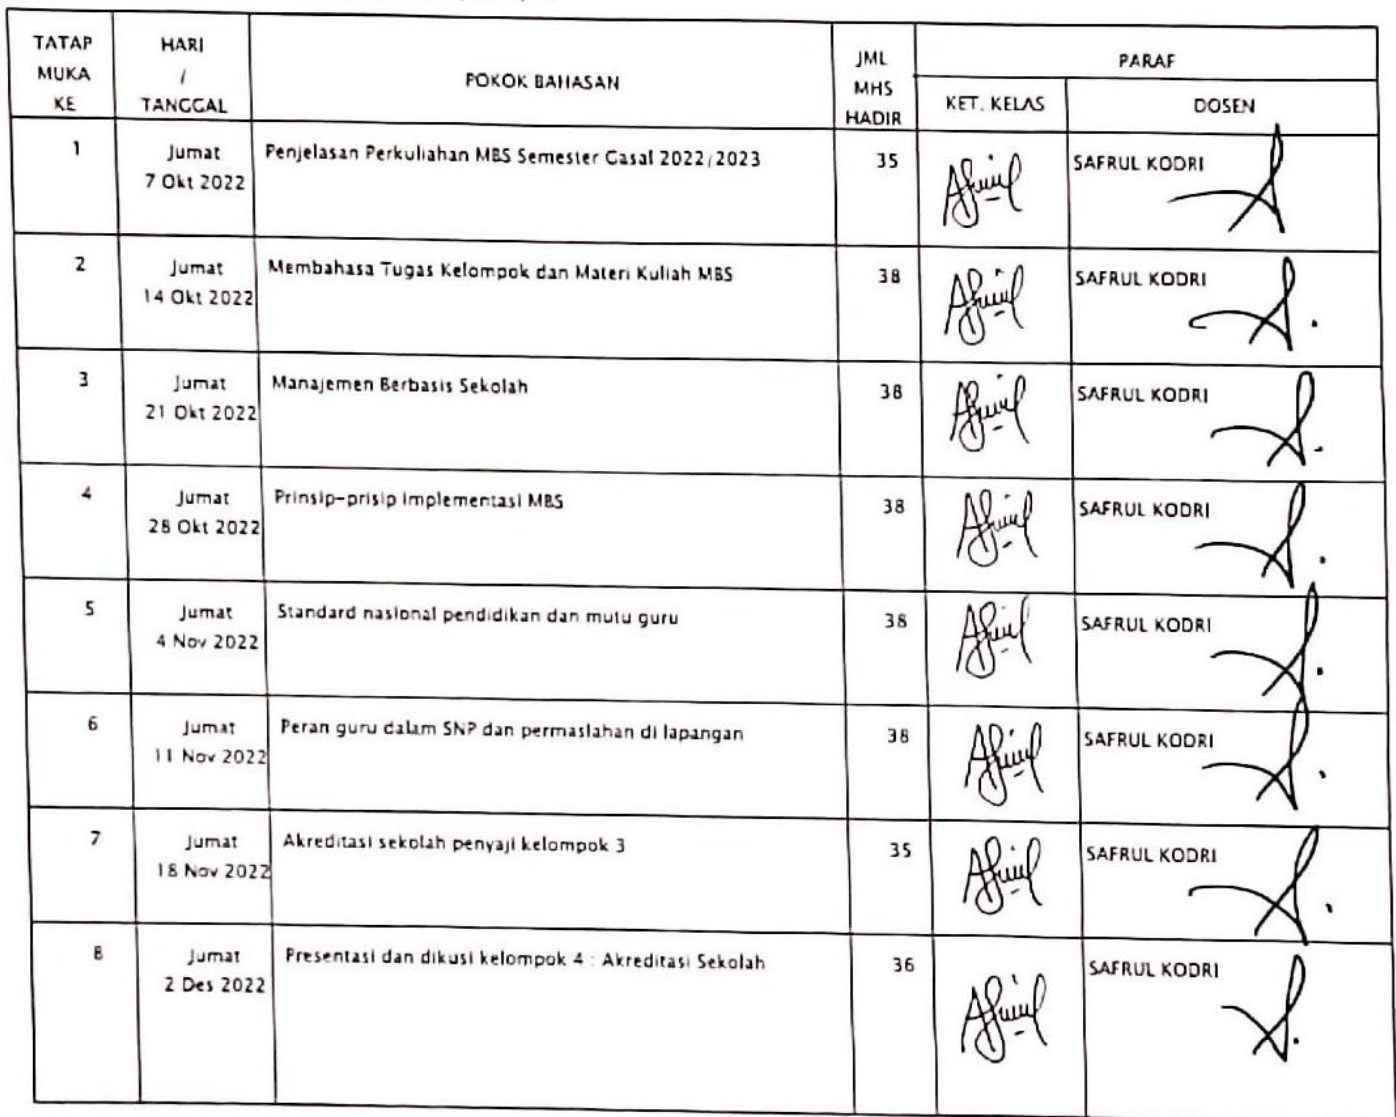 TATAP MUKA KE
HARI / TANGGAL
POKOK BAHASAN
JML MHS HADIR
PARAF
KET. KELAS
DOSEN
1
Jumat
7 Okt 2022
Penjelasan Perkuliahan MBS Semester Gasal 2022/2023
35
SAFRUL KODRI
2
Jumat
14 Okt 2022
Membahasa Tugas Kelompok dan Materi Kuliah MBS
38
SAFRUL KODRI
3
Jumat
21 Okt 2022
Manajemen Berbasis Sekolah
38
SAFRUL KODRI
4
Jumat
28 Okt 2022
Prinsip-prisip implementasi MBS
38
SAFRUL KODRI
5
Jumat
4 Nov 2022
Standard nasional pendidikan dan mutu guru
38
SAFRUL KODRI
6
Jumat
11 Nov 2022
Peran guru dalam SNP dan permaslahan di lapangan
38
SAFRUL KODRI
7
Jumat
18 Nov 2022
Akreditasi sekolah penyaji kelompok 3
35
SAFRUL KODRI
8
Jumat
2 Des 2022
Presentasi dan dikusi kelompok 4 : Akreditasi Sekolah
36
SAFRUL KODRI